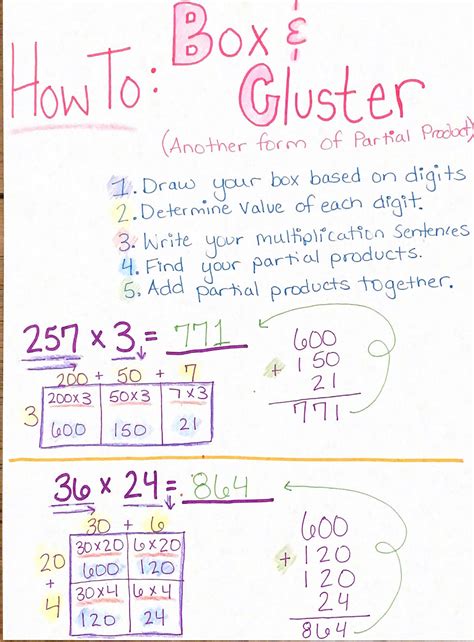 How To: Box &
Cluster
(Another form of Partial Product)
1. Draw your box based on digits
2. Determine Value of each digit.
3. Write your multiplication Sentences
4. Find your partial products.
5. Add partial products together.
257 x 3 = 771
200 + 50 + 7
3
200x3 50x3 7x3
600 150 21
600
+ 150
21
771
36 x 24 = 864
30 + 6
20
+
4
30x20 6x20
600 120
30x4 6x4
120 24
600
+ 120
120
24
864